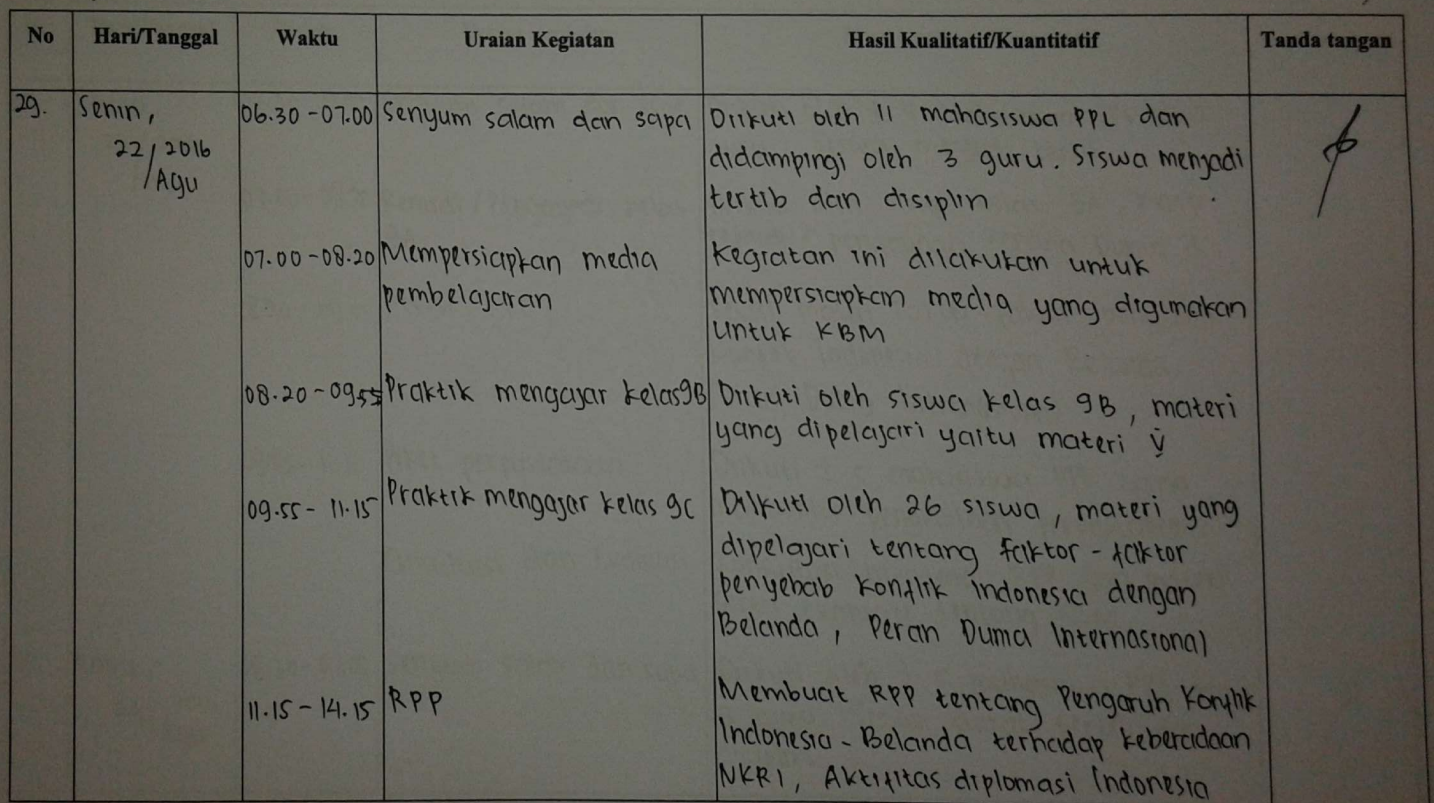 No Hari/Tanggal Waktu Uraian Kegiatan Hasil Kualitatif/Kuantitatif Tanda tangan
29. Senin, 06.30 - 07.00 Senyum salam dan sapa Diikuti oleh 11 mahasiswa PPL dan
22/ 2016 didampingi oleh 3 guru. Siswa menjadi
Agu tertib dan disiplin
07.00 - 08.20 Mempersiapkan media Kegiatan ini dilakukan untuk
pembelajaran mempersiapkan media yang digunakan
untuk KBM
08.20 - 09.55 Praktik mengajar kelas 9B Diikuti oleh siswa kelas 9B, materi
yang dipelajari yaitu materi
09.55 - 11.15 Praktik mengajar kelas 9C Diikuti oleh 26 siswa, materi yang
dipelajari tentang faktor - faktor
penyebab konflik indonesia dengan
Belanda, Peran Dunia Internasional
11.15 - 14.15 RPP Membuat RPP tentang Pengaruh Konflik
Indonesia - Belanda terhadap keberadaan
NKRI, Aktifitas diplomasi Indonesia